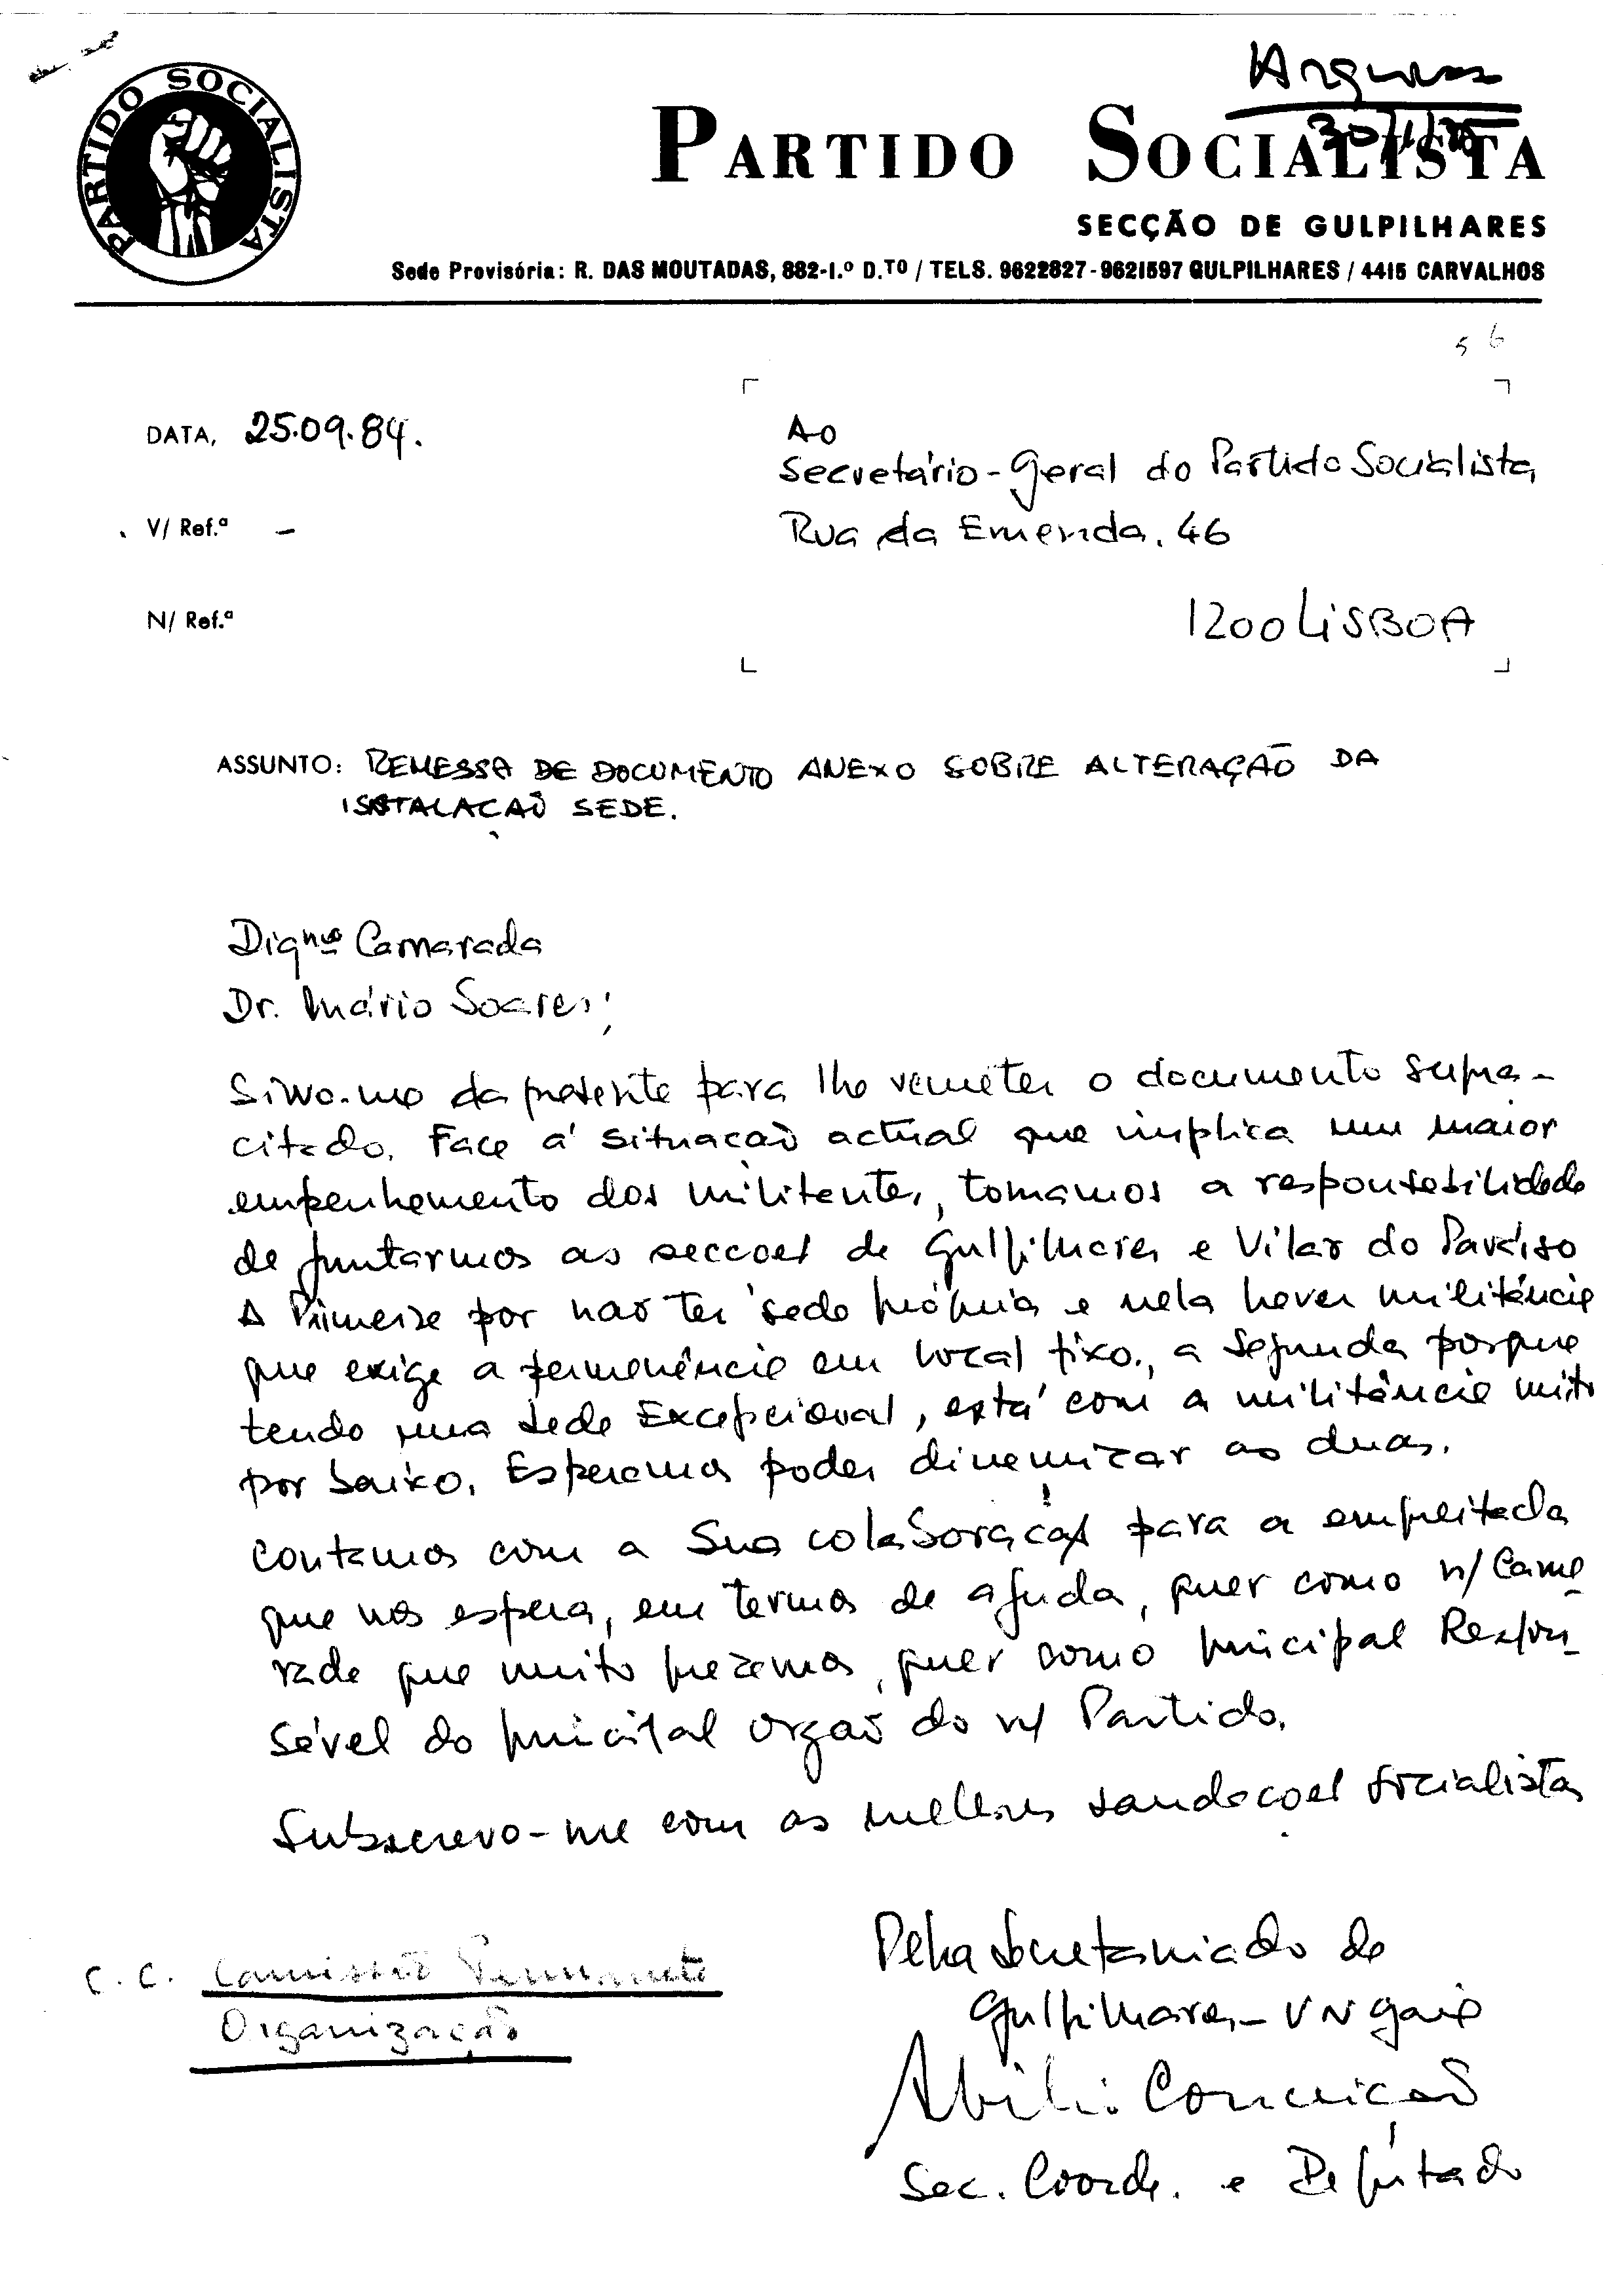 PARTIDO SOCIALISTA
PARTIDO SOCIALISTA
SECÇÃO DE GULPILHARES
Sede Provisória: R. DAS MOUTADAS, 882-1.º D.TO / TELS. 9622827-9621597 GULPILHARES / 4415 CARVALHOS
56
DATA, 25.09.84.
Ao
Secretário-Geral do Partido Socialista
V/ Ref.ª -
Rua da Emenda, 46
N/ Ref.ª
1200 LISBOA
ASSUNTO: REMESSA DE DOCUMENTO ANEXO SOBRE ALTERAÇÃO DA
SEDE.
Digno Camarada
Dr. Mário Soares;
Sirvo-me da presente para lhe remeter o documento supra-
citado. Face á situação actual que implica um maior
empenhamento dos militantes, tomamos a responsabilidade
de juntarmos as secções de Gulpilhares e Vilar do Paraíso
A Primeira por não ter sede própria e nela haver militância
que exige a permanência em local fixo, a segunda porque
tendo uma sede Excepcional, está com a militância muito
por baixo. Esperamos poder dinamizar as duas.
Contamos com a sua colaboração para a empreitada
que nos espera, em termos de ajuda, quer como n/ Cama-
rada que muito prezamos, quer como principal Respon-
sável do principal orgão do n/ Partido.
Subscrevo-me com as melhores saudações socialistas
Pelo Secretariado de
Gulpilhares - VN Gaia
C.C. Comissão Permanente
Organização
Abílio Conceição
Sec. Coord. e Deputado